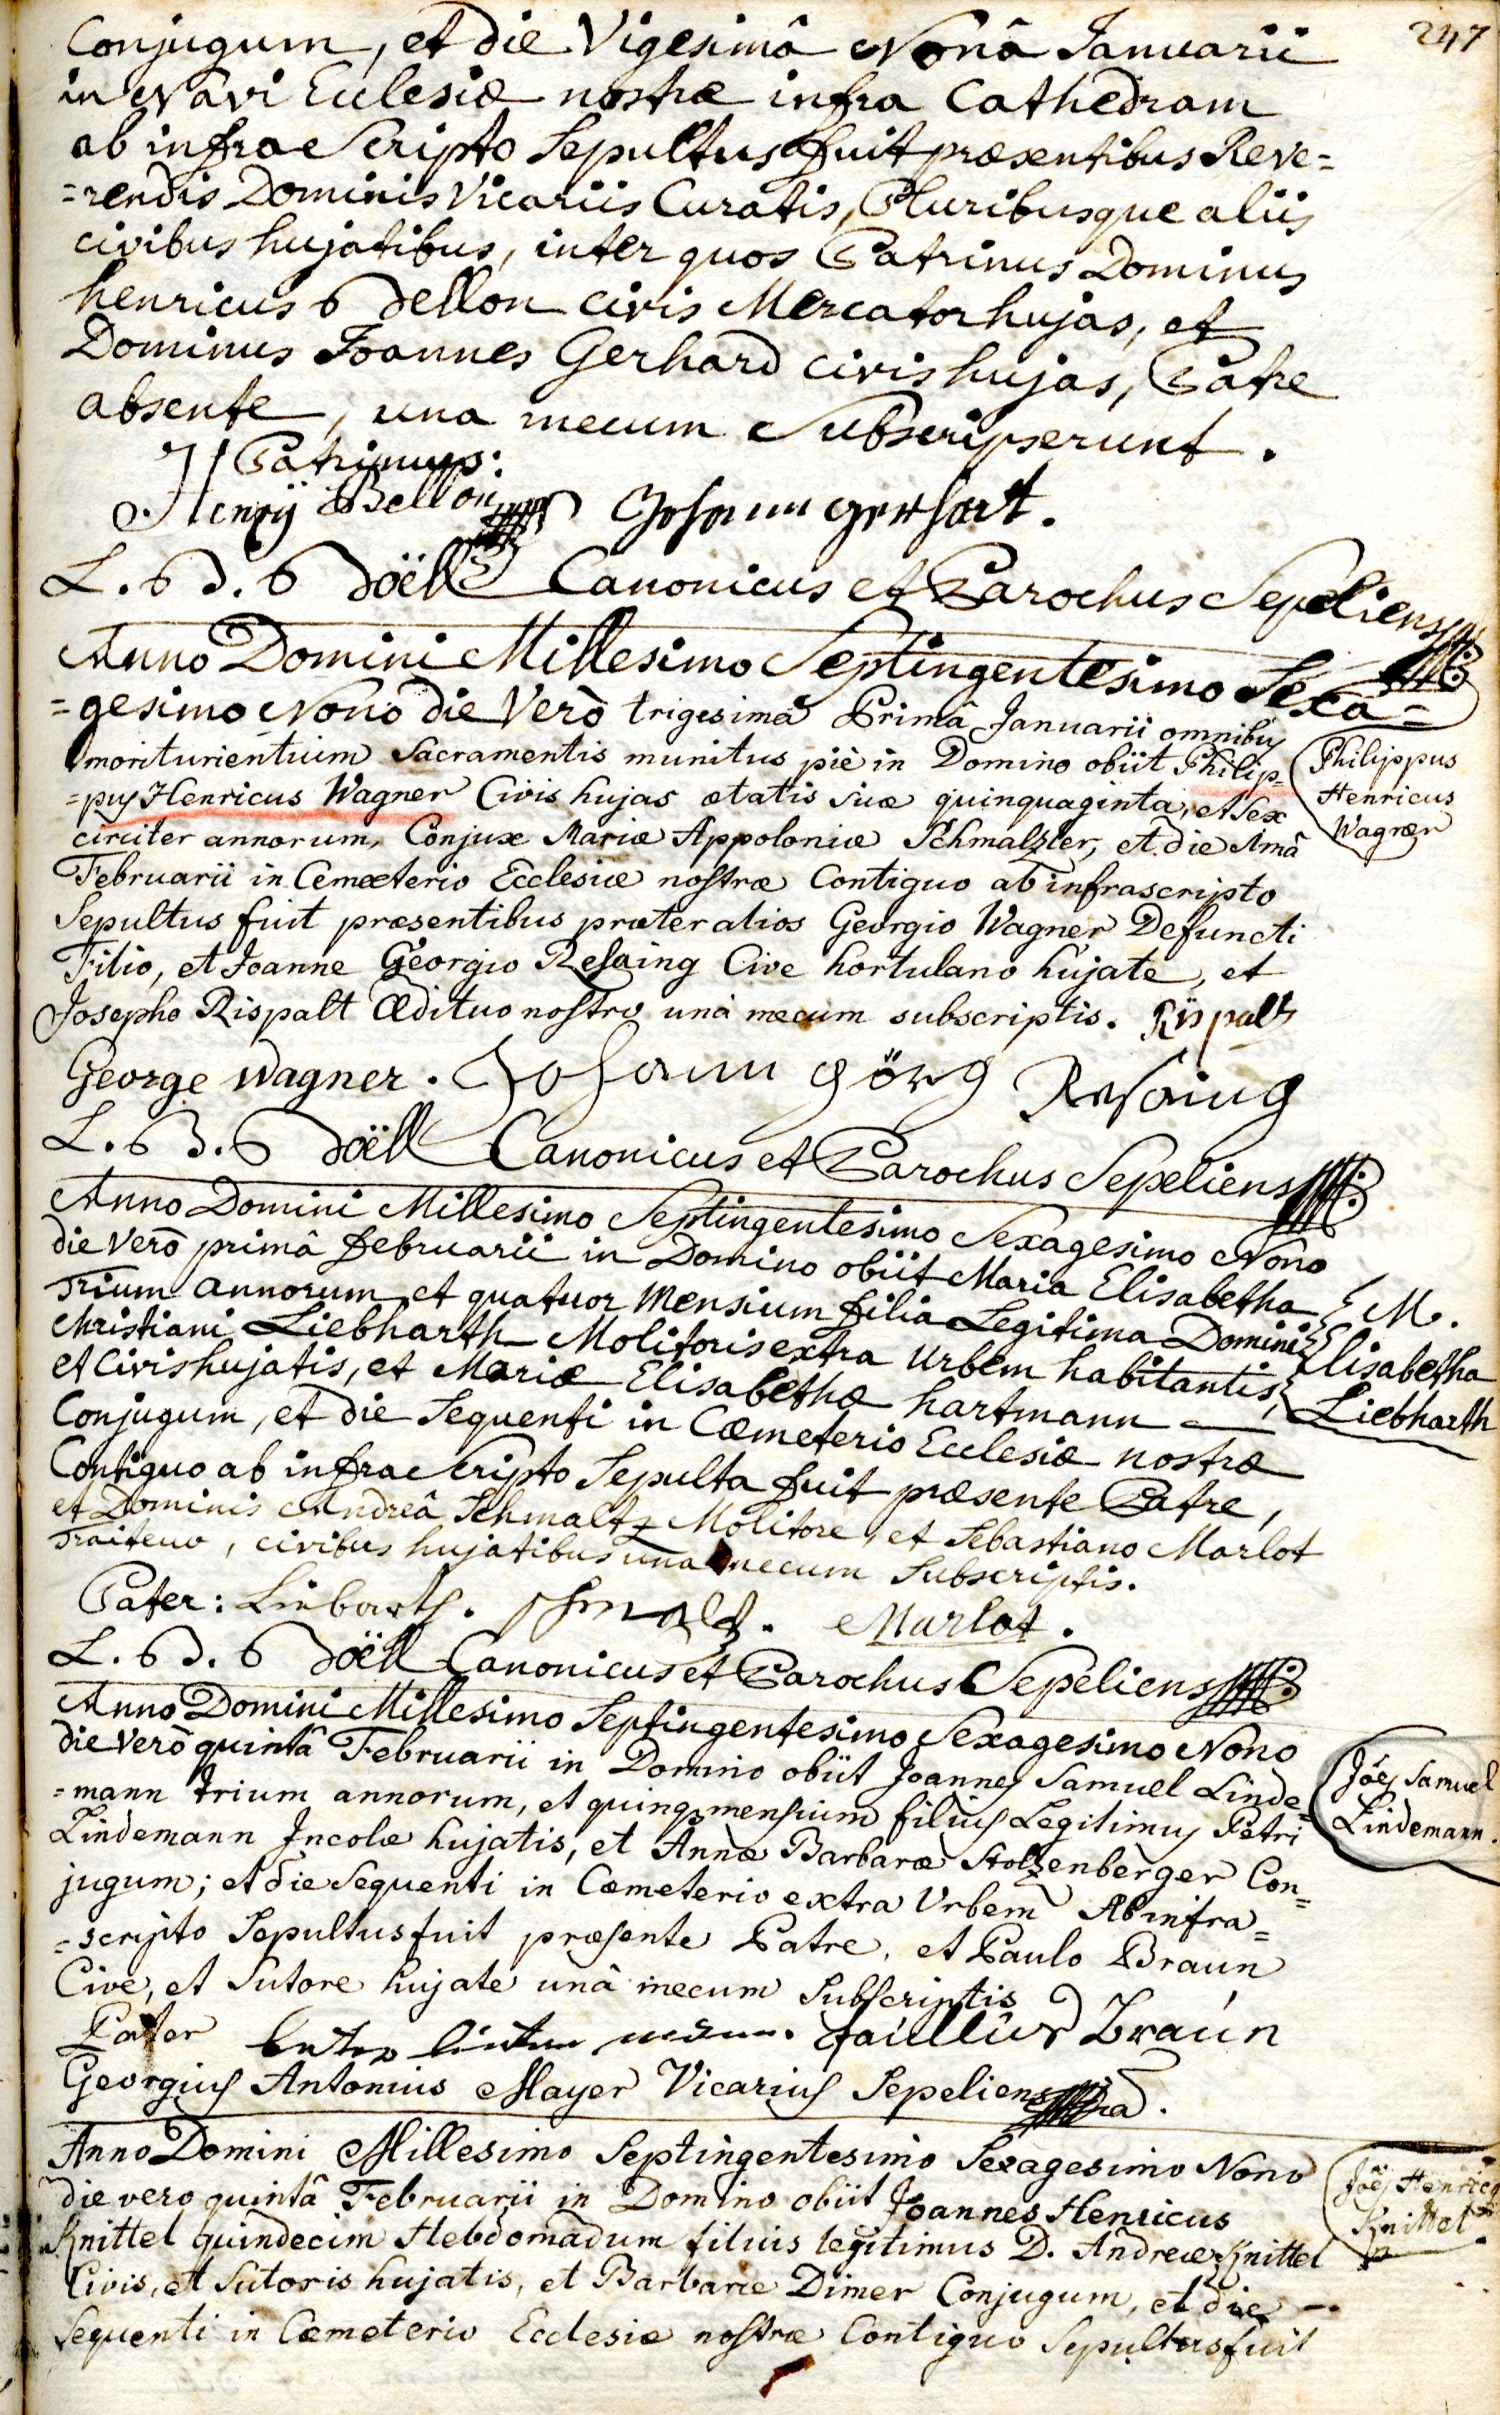 247
Conjugum, et die Vigesimâ Nonâ Januarii
in Navi Eclesiæ nostræ infra Cathedram
ab infra Scripto Sepultus fuit præsentibus Reve=
=rendis Dominis Vicariis Curatis, Pluribusque aliis
civibus hujatibus, inter quos Patrinus Dominus
henricus Bellon civis Mercator hujas, et
Dominus Joannes Gerhard civis hujas, Patre
absente, una mecum Subscripserunt.
Patrinus:
Henrÿ Bellon Johann Gerhart.
L. B. Doëll Canonicus et Parochus Sepeliens
Anno Domini Millesimo Septingentesimo Sexa=
=gesimo Nono die Verò trigesimâ Primâ Januarii omnibus
moriturientium Sacramentis munitus piè in Domino obiit Philip=
=pus Henricus Wagner Civis hujas ætatis suæ quinquaginta, et Sex
Philippus
Henricus
Wagner
circiter annorum, Conjux Mariæ Appoloniæ Schmalzler, et die 1mâ
Februarii in Cemeterio Ecclesiæ nostræ Contiguo ab infrascripto
Sepultus fuit præsentibus præter alios Georgio Wagner Defuncti
Filio, et Joanne Georgio Resaing Cive hortulano hujate, et
Josepho Rispalt Ædituo nostro unà mecum subscriptis. Rispalt
George Wagner. Johann Görg Resaing
L. B. Doëll Canonicus et Parochus Sepeliens
Anno Domini Millesimo Septingentesimo Sexagesimo Nono
die Verò primâ februarii in Domino obiit Maria Elisabetha
Trium annorum et quatuor Mensium filia Legitima Domini
Christiani Liebharth Molitoris extra Urbem habitantis,
M.
Elisabetha
Liebharth
et Civis hujatis, et Mariæ Elisabethæ hartmann
Conjugum, et die Sequenti in Cœmeterio Ecclesiæ nostræ
Contiguo ab infra Scripto Sepulta fuit præsente Patre,
et Dominis Andreâ Schmaltz Molitore, et Sebastiano Marlot
Traiteuo, civibus hujatibus unâ mecum Subscriptis.
Pater: Liebarth. Schmaltz. Marlot.
L. B. Doëll Canonicus et Parochus Sepeliens
Anno Domini Millesimo Septingentesimo Sexagesimo Nono
die Verò quintâ Februarii in Domino obiit Joannes Samuel Linde=
=mann trium annorum, et quinq mensium filius Legitimus Petri
Joës Samuel
Lindemann.
Lindemann Incolæ hujatis, et Annæ Barbaræ Stoltzenberger Con=
jugum; et die Sequenti in Cœmeterio extra Urbem Ab infra=
=scripto Sepultus fuit præsente Patre, et Paulo Braun
Cive, et Sutore hujate unâ mecum Subscriptis
Pater Braun
Georgius Antonius Mayer Vicarius Sepeliens
Anno Domini Millesimo Septingentesimo Sexagesimo Nono
die vero quintâ Februarii in Domino obiit Joannes Henricus
Joës Henricq
Knittel
Knittel quindecim Hebdomadum filius legitimus D. Andreæ Knittel
Civis, et Sutoris hujatis, et Barbaræ Dimer Conjugum, et die
Sequenti in Cœmeterio Ecclesiæ nostræ Contiguo Sepultus fuit